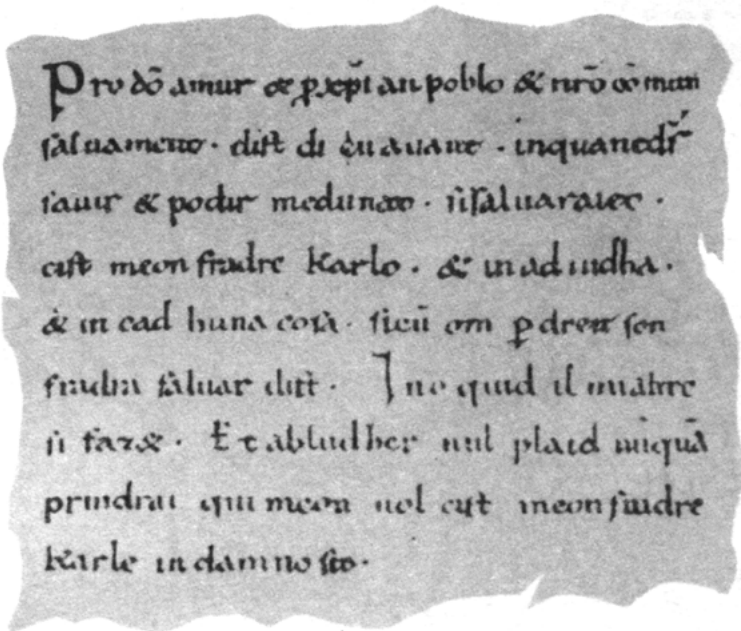 Pro dō amur & ꝑ xp̄ian poblo & nr̄o cōmun
saluament · dist di en auant · inquantd̄s
sauir & podir medunat · sisaluaraieo ·
cist meon fradre Karlo · & in ad iudha ·
& in cad huna cosa · sicū om ꝑ dreit son
fradra saluar dift · Ino quid il mialtre
si fazet · Et abludher nul plaid nūquā
prindrai qui meon uol cist meonfradre
Karle in damno sit ·